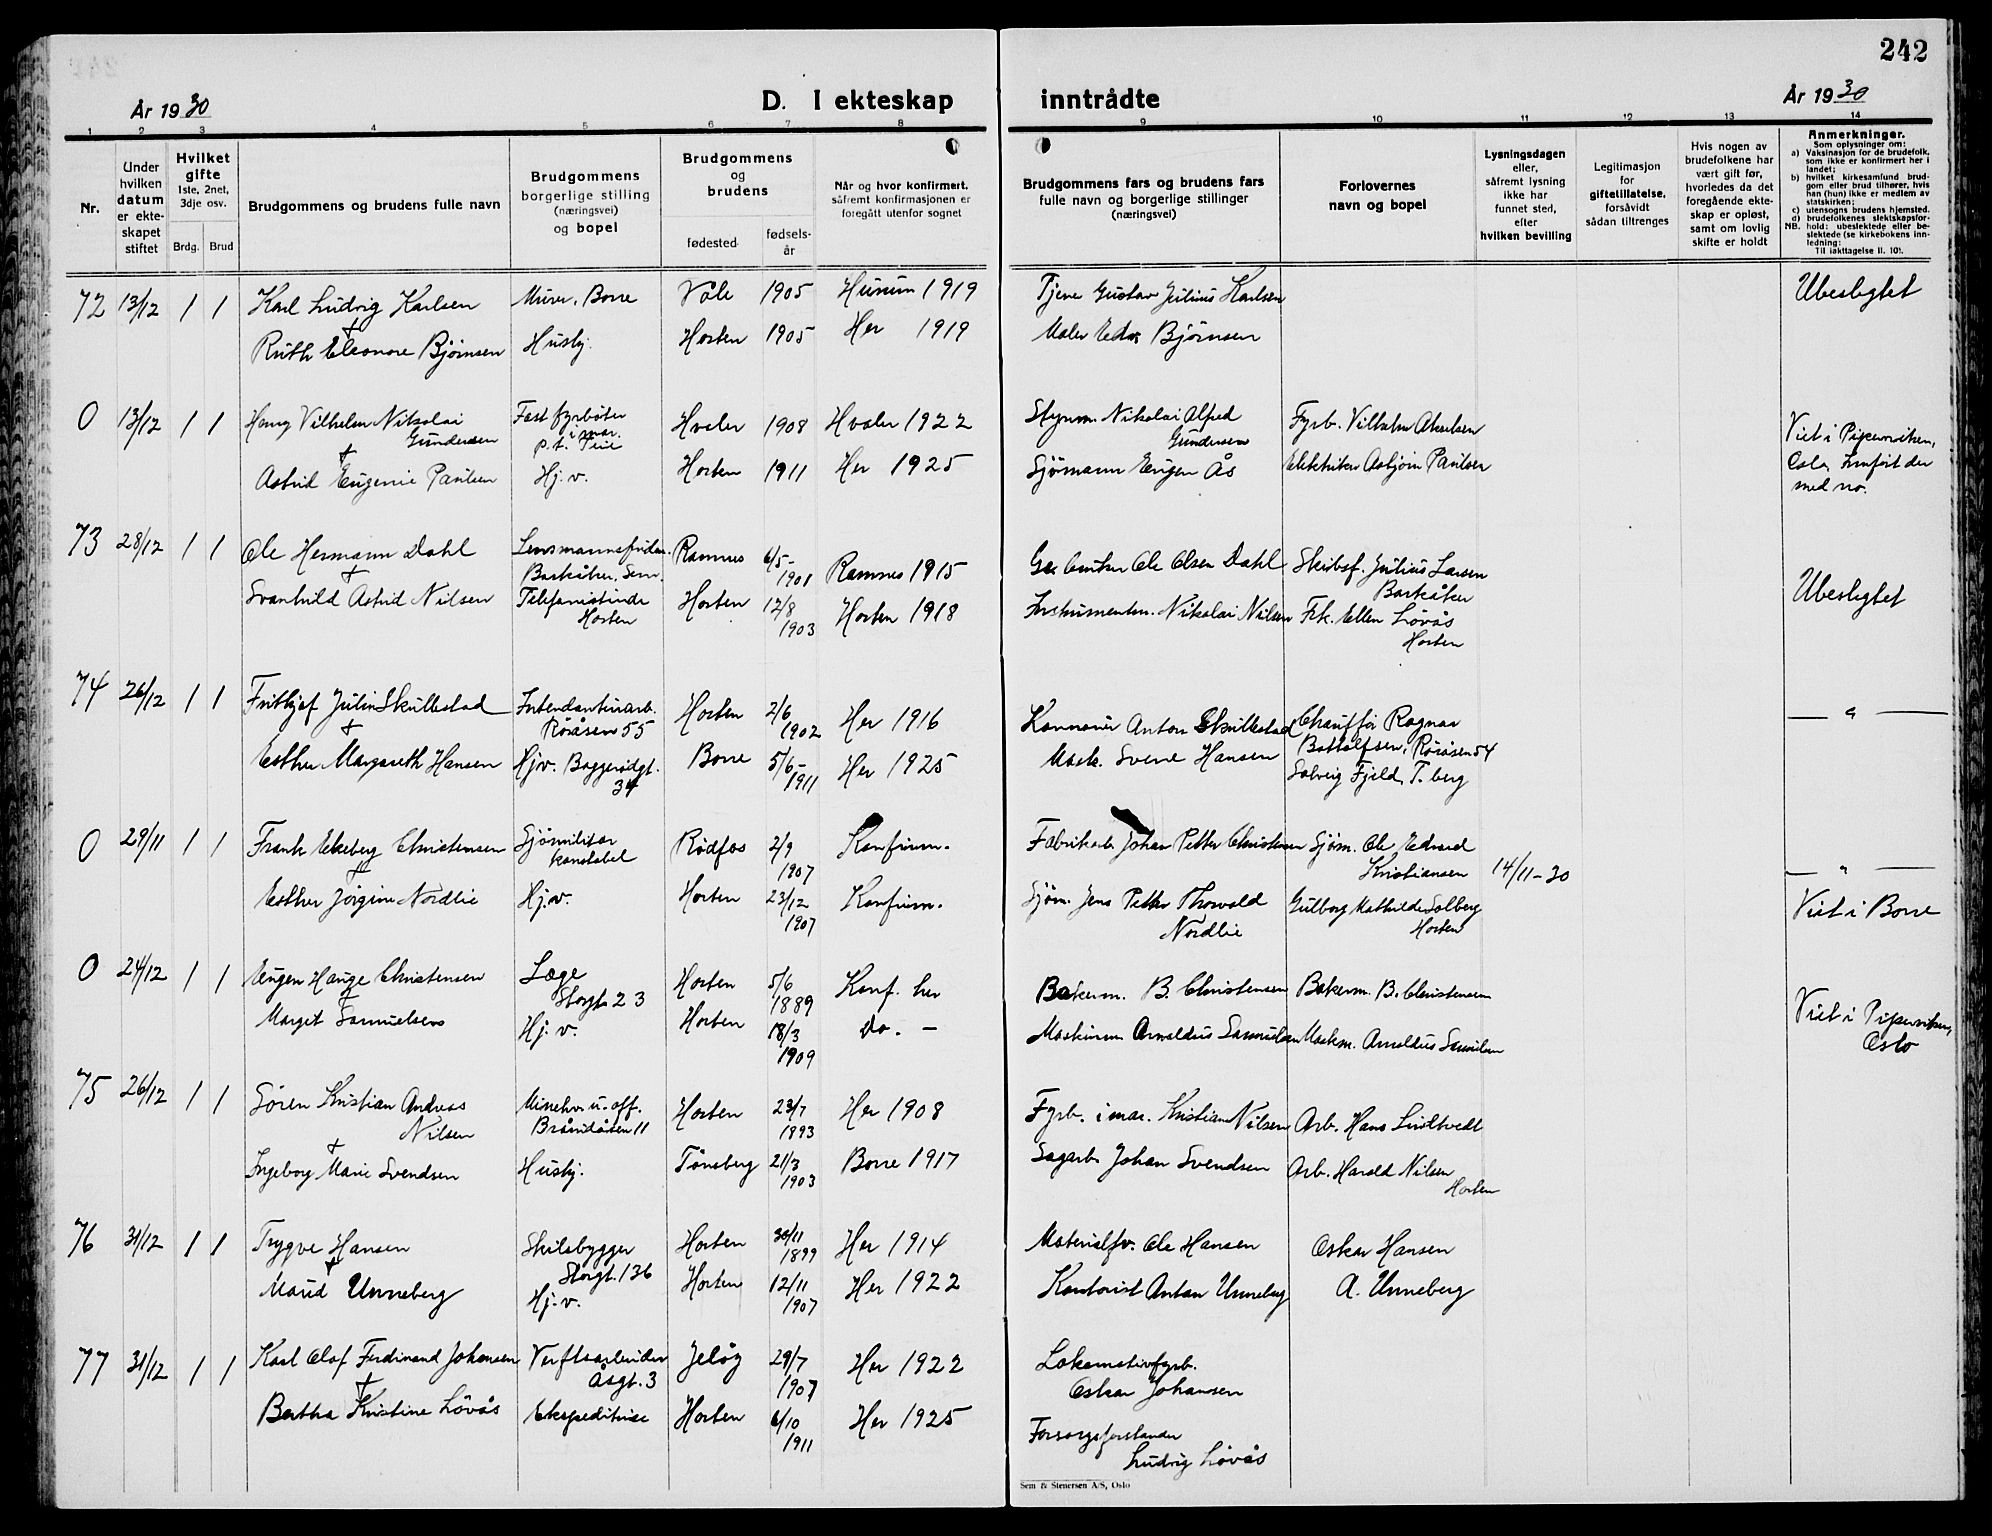 242
År 1930
D. I ekteskap inntrådte
År 1930
1 2 3 4 5 6 7 8 9 10 11 12 13 14
Nr.
Under
hvilken
datum
er ekte-
skapet
stiftet
Hvilket
gifte
1ste, 2net,
3dje osv.
Brdg. Brud
Brudgommens og brudens fulle navn
Brudgommens
borgerlige stilling
(næringsvei)
og bopel
Brudgommens
og
brudens
fødested
fødsels-
år
Når og hvor konfirmert,
såfremt konfirmasjonen er
foregått utenfor sognet
Brudgommens fars og brudens fars
fulle navn og borgerlige stillinger
(næringsvei)
Forlovernes
navn og bopel
Lysningsdagen
eller,
såfremt lysning
ikke har
funnet sted,
efter
hvilken bevilling
Legitimasjon
for
giftetillatelse,
forsåvidt
sådan tiltrenges
Hvis nogen av
brudefolkene har
vært gift før,
hvorledes da det
foregående ekte-
skap er opløst,
samt om lovlig
skifte er holdt
Anmerkninger.
Som oplysninger om:
a) Vaksinasjon for de brudefolk,
som ikke er konfirmert her i
landet;
b) hvilket kirkesamfund brud-
gom eller brud tilhører, hvis
han (hun) ikke er medlem av
statskirken;
c) utensogns brudens hjemsted.
d) brudefolkenes slektskapsfor-
NB. hold: ubeslektede eller be-
slektede (se kirkebokens inn-
ledning:
Til iakttagelse II. 10).
72 13/12 1 1 Karl Ludvig Karlsen Murer, Borre Våle 1905 Husum 1919 Tjene Gustav Julius Karlsen Ubeslegtet
+
Ruth Eleonore Bjørnsen Husbj. Horten 1905 Her 1919 Maler Edv. Bjørnsen
0 13/12 1 1 Harry Vilhelm Nikolai Fast fyrbøter Hvaler 1908 Hvaler 1922 Styrm. Nikolai Alfred Fyrb. Vilhelm Akselsen
Gundersen i mar. Gundersen Viet i Pipervviken,
+ p.t.
Astrid Eugenie Paulsen Hj.v. Horten 1911 Her 1925 Sjømann Eugen Ås Elektriker Asbjørn Paulsen Oslo. Innført der
med no.
73 28/12 1 1 Ole Hermann Dahl Lensmannsfullm. Ramnes 6/5- 1901 Ramnes 1915 Ole Olsen Dahl Skibsf. Julius Larsen
+ Barkåker, Sem. Barkåker Ubeslegtet
Svanhild Astrid Nilsen Telefonistinde Horten 12/8 1903 Horten 1918 Instrumentm. Nikolai Nilsen Frk. Ellen Løvås
Horten Horten
74 26/12 1 1 Frithjof Julin Skullestad Intendanturarb. Horten 2/6 1902 Her 1916 Kanonér Anton Skullestad Chauffør Ragnar — " —
+ Røråsen 55 Bottolfsen, Røråsen 54
Esther Margareth Hansen Hjv. Baggerødgt. Borre 5/6- 1911 Her 1925 Mask. Svend Hansen Solveig Fjeld, T.berg
34
0 29/11 1 1 Frank Ekeberg Christensen Sjømilitær Rødfos 2/9 1907 Konfirm. Fabrikarb. Johan Petter Christensen Sjøm. Ole Edvard
+ konstabel Kristiansen 14/11-30 — " —
Esther Jørgine Nordlie Hj.v. Horten 23/12 1907 Konfirm. Sjøm. Jens Petter Thorvald Gulborg Mathilde Solberg Viet i Borre
Nordlie Horten
0 24/12 1 1 Eugen Hauge Christensen Læge Horten 5/6 1889 Konf. her Bakerm. B. Christensen Bakerm. B. Christensen
+ Storgt. 23 Viet i Piperviken,
Margit Samuelsen Hj.v. Horten 18/3 1909 Do. — Maskinm. Arnoldus Samuelsen Maskm. Arnoldus Samuelsen Oslo
75 26/12 1 1 Søren Kristian Andreas Minehv. u.off. Horten 23/7 1893 Her 1908 Fyrb. i mar. Kristian Nilsen Arb. Hans Lindtvedt
Nilsen Bråndåsen 11
+
Ingeborg Marie Svendsen Husbj. Tønsberg 21/3 1903 Borre 1917 Sagarb. Johan Svendsen Arb. Harald Nilsen
Horten
76 31/12 1 1 Trygve Hansen Skibsbygger Horten 30/11 1899 Her 1914 Materialfv. Ole Hansen Oskar Hansen
+ Storgt. 136
Maud Unneberg Hj.v. Horten 12/11 1907 Her 1922 Kontorist Anton Unneberg A. Unneberg
77 31/12 1 1 Karl Olaf Ferdinand Johansen Verftsarbeider Jeløy 29/7 1907 Her 1922 Lokomotivfyrb.
+ Åsgt. 3 Oskar Johansen
Bertha Kristine Løvås Ekspeditrise Horten 6/10 1911 Her 1925 Forsorgsforstander
Ludvig Løvås
Sem & Stenersen A/S, Oslo